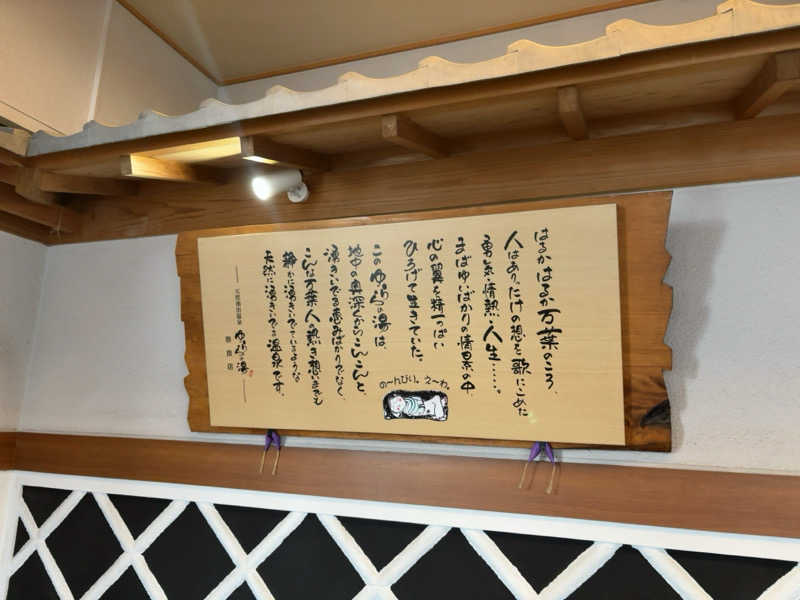 はるかはるか万葉のころ、
人はありったけの想を歌にこめた
勇気・情熱・人生……。
まばゆいばかりの情景の中、
心の翼を精一っぱい
ひろげて生きていた。
このゆららの湯は、
地中の奥深くからこんこんと、
湧きいでる恵みばかりでなく、
こんな万葉人の熱き想いまでも
静かに湧きいでているような
天然に湧きいでる温泉です。
天然湧出温泉
ゆららの湯
奈良店
の〜んびり。え〜わ。